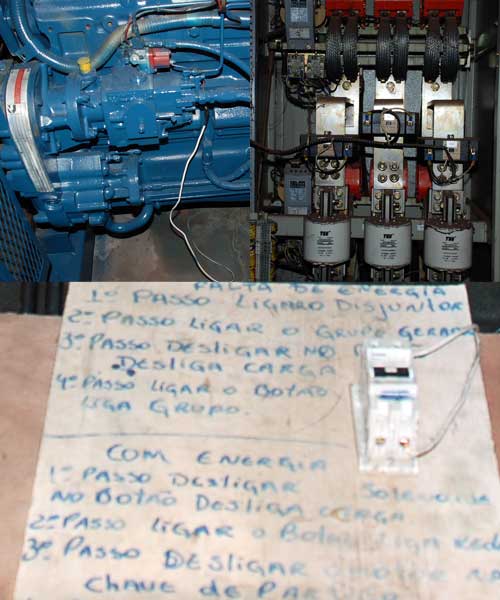 FALTA DE ENERGIA
1º PASSO LIGAR O DISJUNTOR
2º PASSO LIGAR O GRUPO GERADO
3º PASSO DESLIGAR NO
DESLIGA CARGA
4º PASSO LIGAR O BOTÃO
LIGA GRUPO.
COM ENERGIA
1º PASSO DESLIGAR
NO BOTÃO DESLIGA CARGA
2º PASSO LIGAR O BOTÃO LIGA REDE
3º PASSO DESLIGAR O MOTOR NA
CHAVE DE PARTIDA